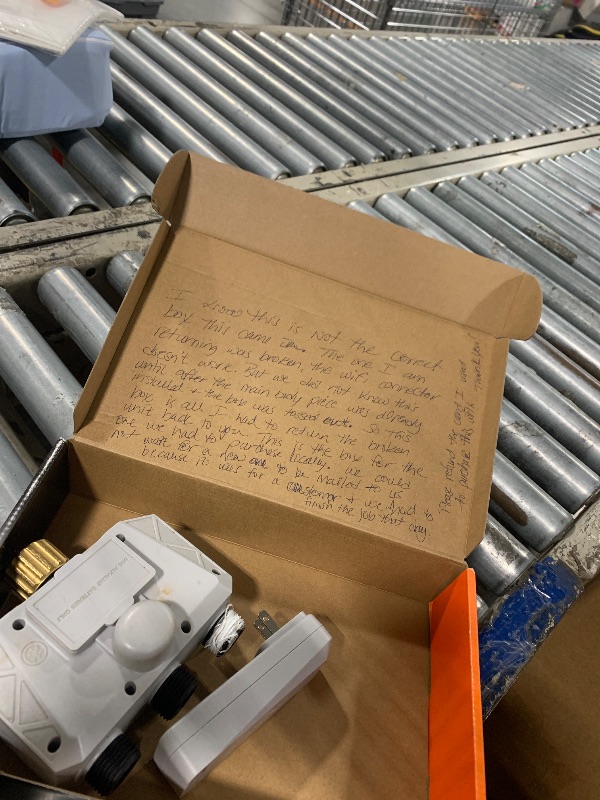 I know this is Not the correct
box this came in. The one I am
returning was broken, the wifi connector
doesn't work. But we did not know this
until after the main body piece was already
installed & the box was tossed out. So this
box is all I had to return the broken
unit back to you. This is the box for the
one we had to purchase locally. We could
not wait for a new one to be mailed to us
because it was for a customer & we had to
finish the job that day.
Please refund the card I used
to purchase this with
Thank you!
USE ALKALINE BATTERIES ONLY